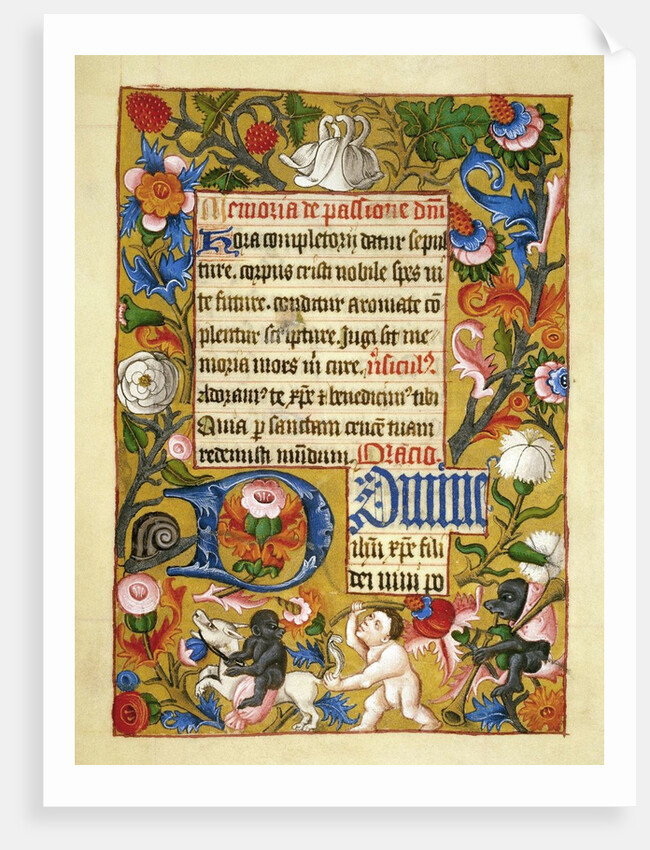 Memoria de passione dñi
Hora completorii datur sepul
ture. corpus cristi nobile spes vi
te future. conditur aromate cō
plentur scripture. Jugi sit me
moria mors m̄ cure. v̓sicul9.
Adoram9 te xp̄e ⁊ benedicim9 tibi
Quia p sanctam crucē tuam
redemisti mūdum. Oracio.
Domine
ih̄u xp̄e fili
dei viui po